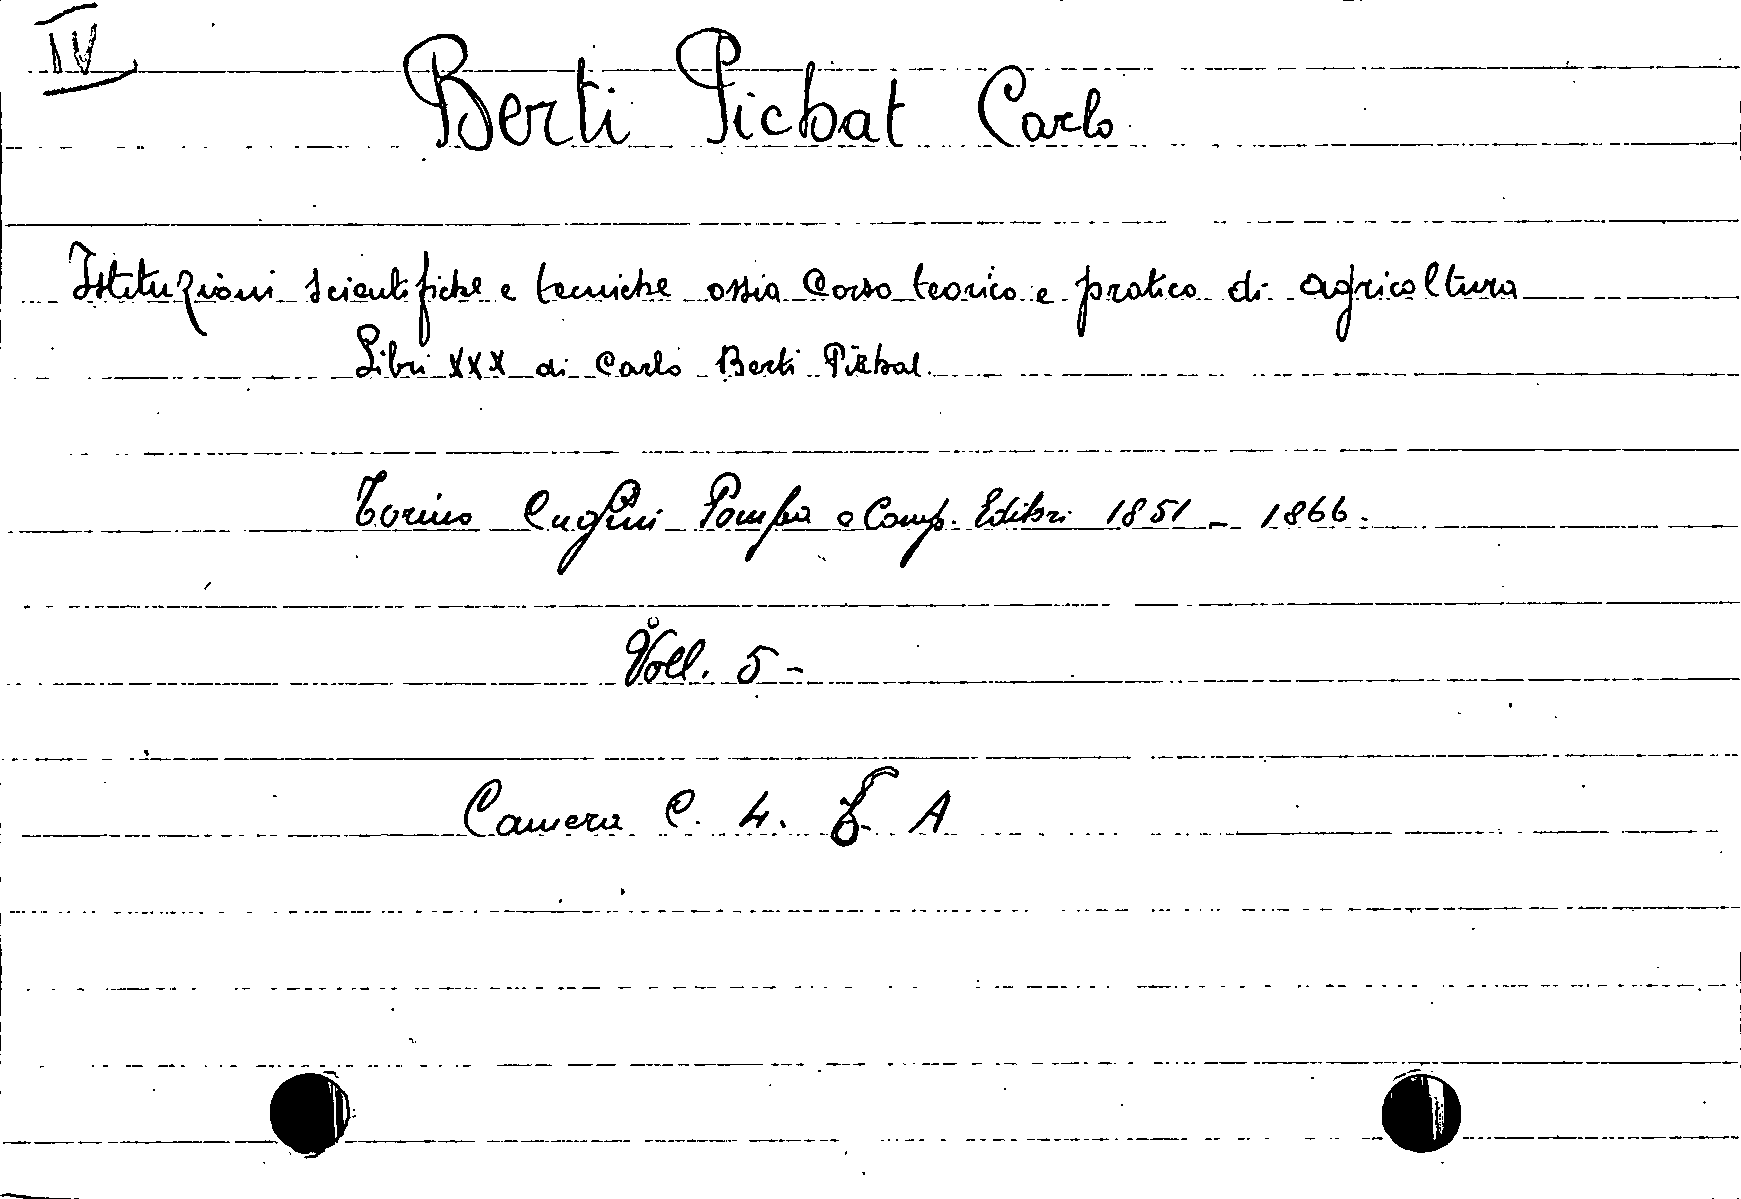 IV
Berti Pichat Carlo
Istituzioni scientifiche e tecniche ossia Corso teorico e pratico di agricoltura
Libri XXX di Carlo Berti Pichat.
Torino Cugini Pomba e Comp. Editori 1851 - 1866.
Voll. 5 -
Camera C. 4. A